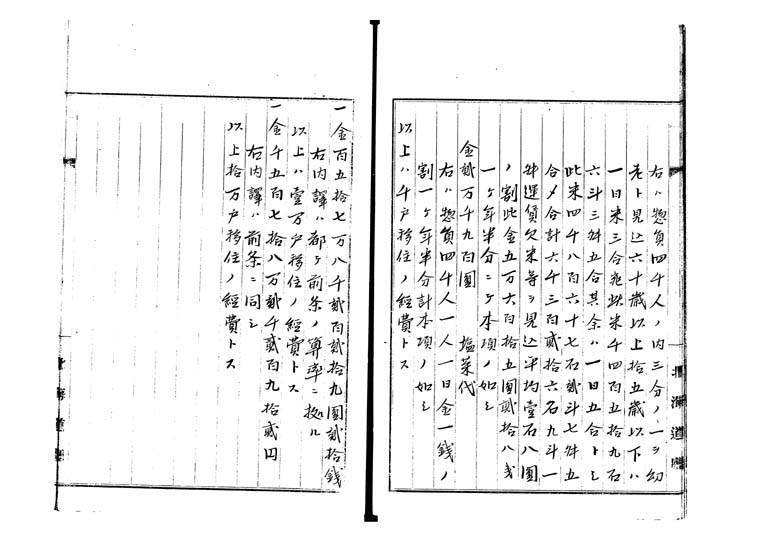 右ハ惣員四千人ノ内三分ノ一ヲ幼
老ト見込六十歳以上拾五歳以下ハ
一日米三合此米千四百五拾九石
六斗三舛五合其余ハ一日五合トシ
此米四千八百六十七石弐斗七舛五
合〆合計六千三百弐拾六石九斗一
舛運賃欠米等ヲ見込平均壹石八圓
ノ割此金五万六百拾五圓弐拾八戋
一ヶ年半分ニシテ本項ノ如シ
金弐万千九百圓 塩菜代
右ハ惣員四千人一人一日金一錢ノ
割一ヶ年半分計本項ノ如シ
以上ハ千戸移住ノ経費トス
一金百五拾七万八千弐百弐拾九圓弐拾錢
右内譯ハ都テ前条ノ算率ニ拠ル
以上ハ壹万戸移住ノ経費トス
一金千五百七拾八万弐千弐百九拾弐円
右内譯ハ前条ニ同シ
以上拾万戸移住ノ経費トス
北海道廳
北海道廳